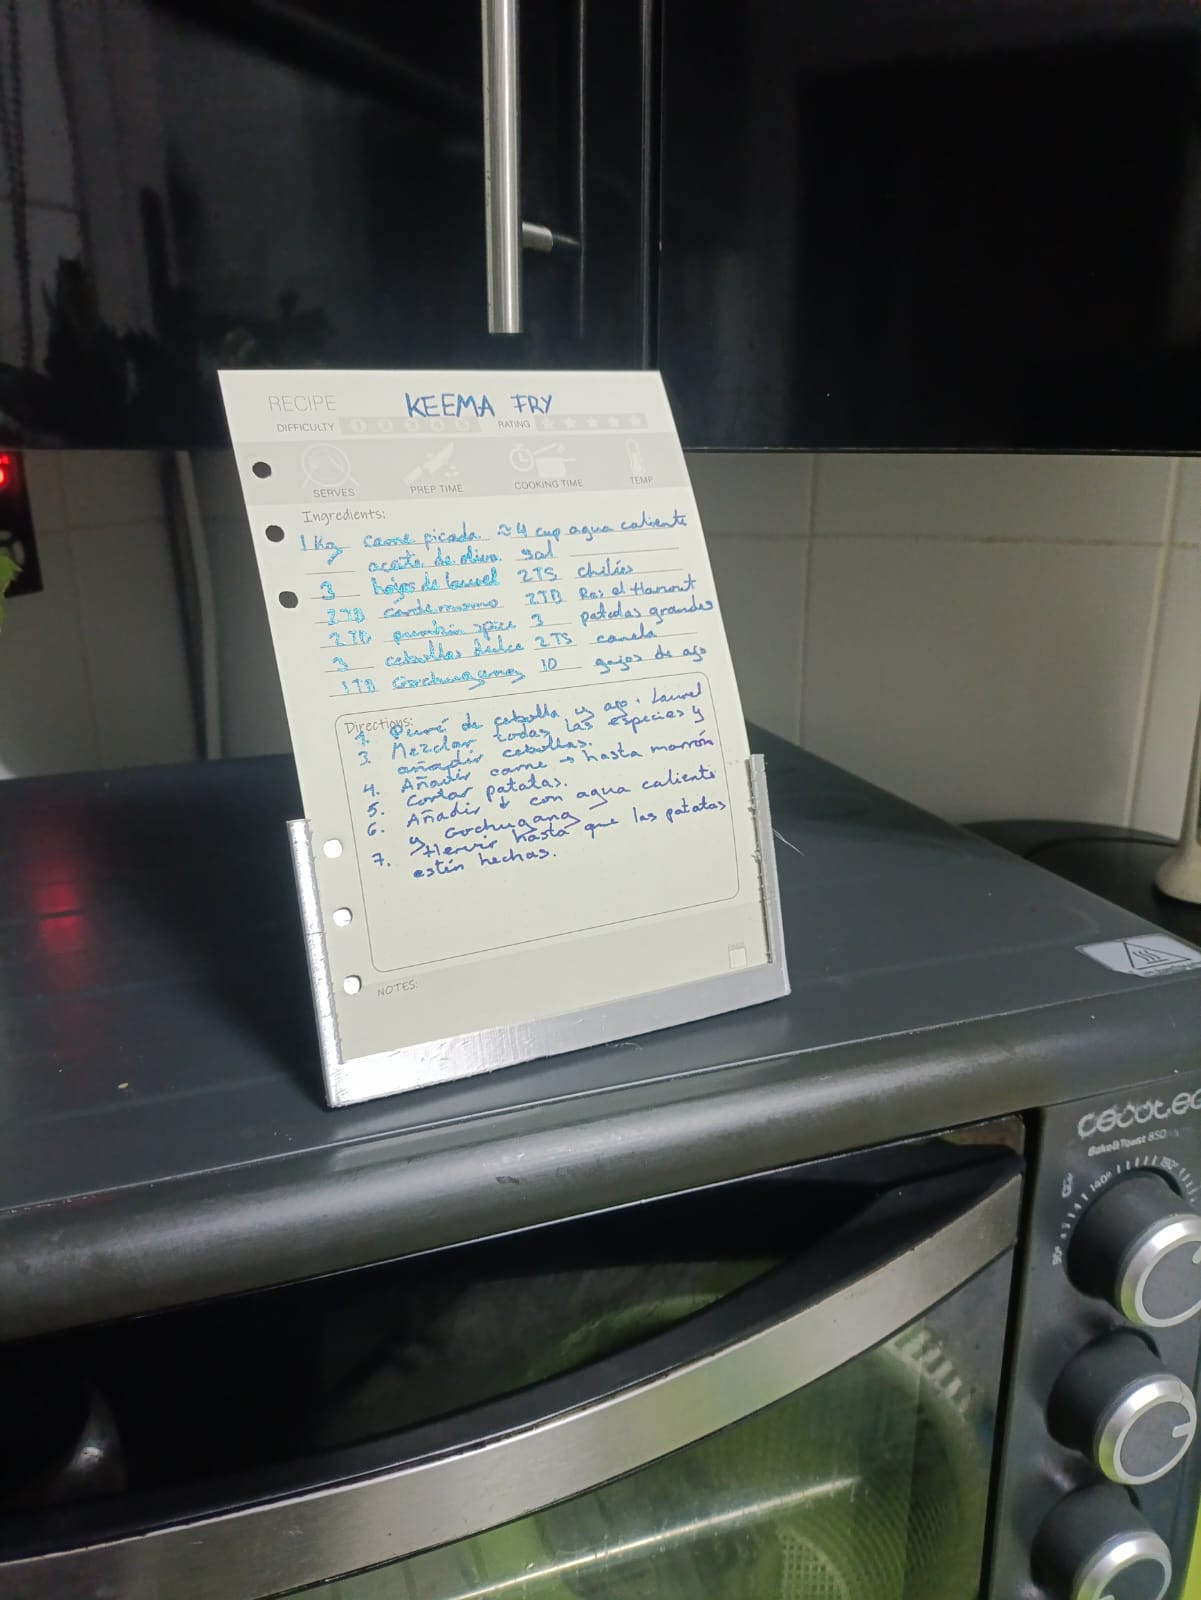 RECIPE KEEMA FRY
DIFFICULTY 1 2 3 4 5 RATING
SERVES PREP TIME COOKING TIME TEMP
Ingredients:
1 Kg carne picada ≈4 cup agua caliente
aceite de oliva sal
3 hojas de laurel 2TS chilies
2TB cardemomo 2TB Ras el Hanout
2TB pumkin spice 3 patatas grandes
3 cebollas dulce 2TS canela
1TB Gochugang 10 gajos de ajo
Directions:
1. Puré de cebolla y ajo + Laurel
3. Mezclar todas las especies y
añadir cebollas.
4. Añadir carne → hasta marrón
5. Cortar patatas.
6. Añadir ↓ con agua caliente
y Gochugang
7. Hervir hasta que las patatas
estén hechas.
NOTES:
cecotec
Bake&Toast 850
140°